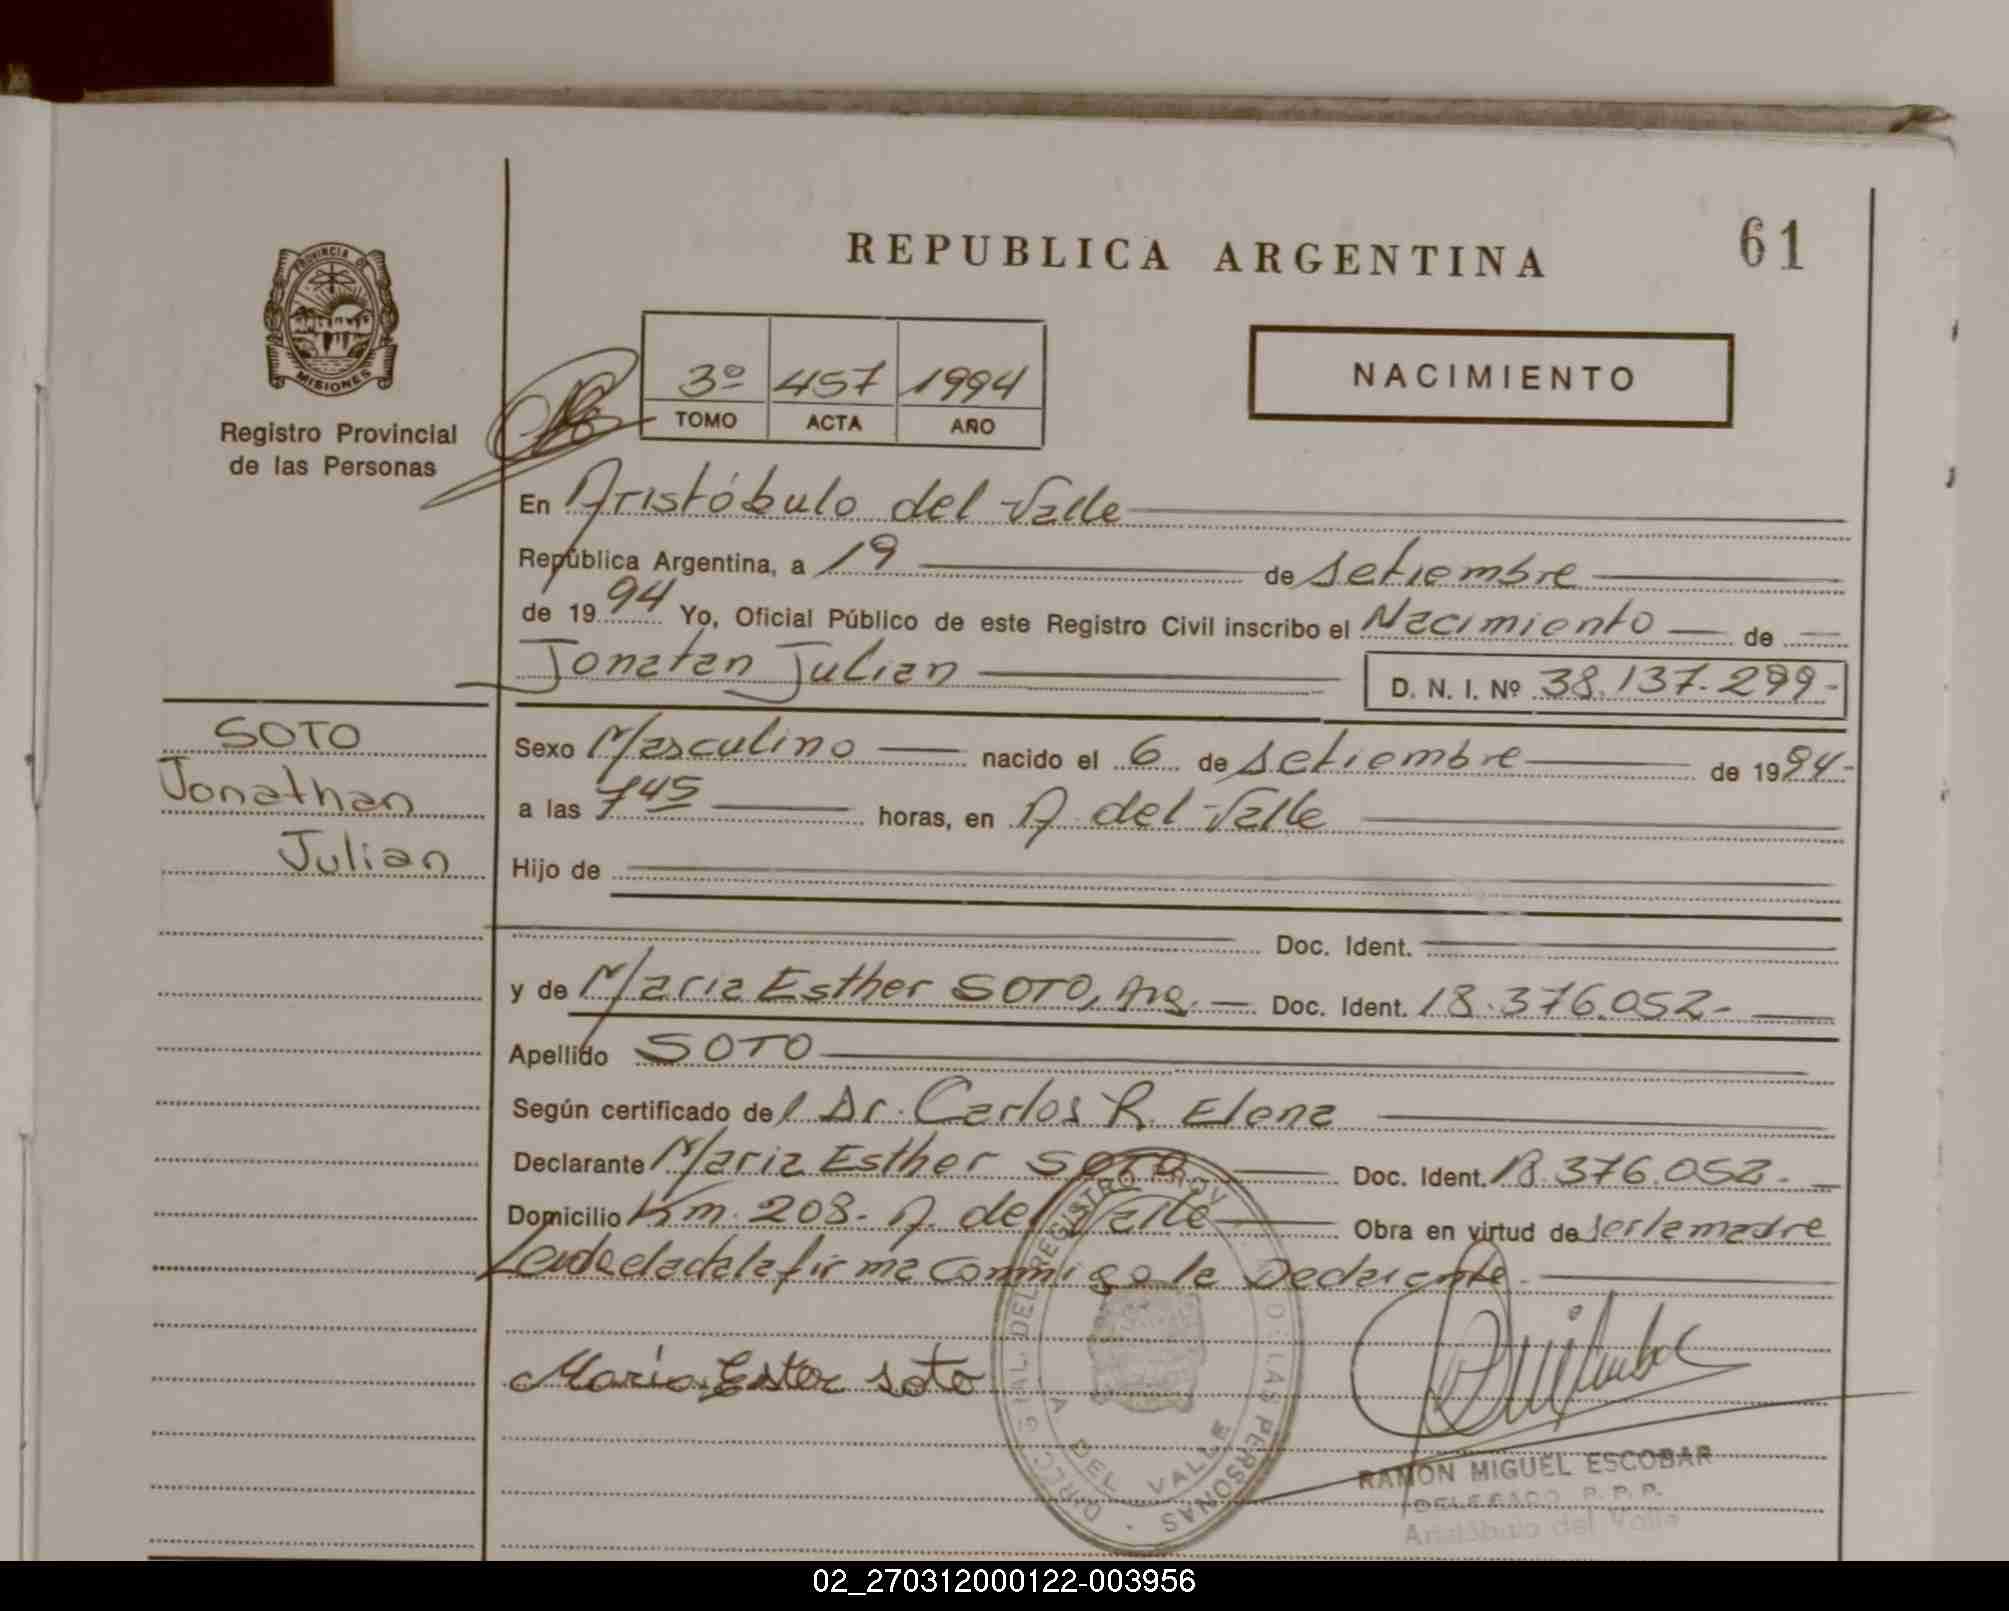 REPUBLICA ARGENTINA
61
PROVINCIA DE
MISIONES
Registro Provincial
de las Personas
3º 457 1994
TOMO ACTA AÑO
NACIMIENTO
En Aristóbulo del Valle
República Argentina, a 19 de setiembre
de 1994 Yo, Oficial Público de este Registro Civil inscribo el Nacimiento de
Jonatan Julian D. N. I. Nº 38.137.299-
SOTO
Jonathan
Julian
Sexo Masculino nacido el 6 de setiembre de 1994-
a las 7 45 horas, en A. del Valle
Hijo de
Doc. Ident.
y de Maria Esther SOTO, Arg. Doc. Ident. 18.376.052-
Apellido SOTO
Según certificado del Dr. Carlos R. Elena
Declarante Maria Esther SOTO Doc. Ident. 18.376.052-
Domicilio Km. 208- A. del Valle Obra en virtud de ser la madre
Leída el acta la firma conmigo la Declarante
Maria Ester soto
DIREC. GRAL. DEL REGISTRO PROV. DE LAS PERSONAS
A DEL VALLE
RAMON MIGUEL ESCOBAR
DELEGADO R. P. P.
Aristóbulo del Valle
02_270312000122-003956